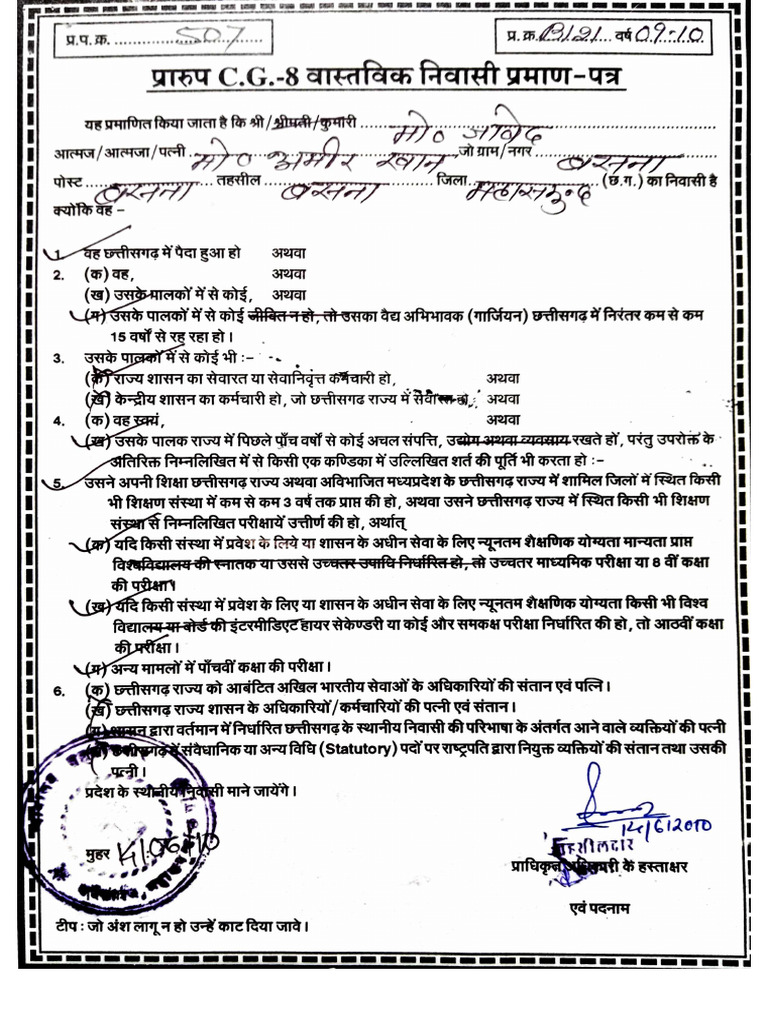 प्र.प.क्र. 507
प्र.क्र. B/21 वर्ष 09-10
प्रारुप C.G.-8 वास्तविक निवासी प्रमाण-पत्र
यह प्रमाणित किया जाता है कि श्री/श्रीमती/कुमारी मो० आबेद
आत्मज/आत्मजा/पत्नी मो० अमीर खान जो ग्राम/नगर बसना
पोस्ट बसना तहसील बसना जिला महासमुन्द (छ.ग.) का निवासी है
क्योंकि वह –
1. वह छत्तीसगढ़ में पैदा हुआ हो अथवा
2. (क) वह, अथवा
(ख) उसके पालकों में से कोई, अथवा
(ग) उसके पालकों में से कोई जीवित न हो, तो उसका वैद्य अभिभावक (गार्जियन) छत्तीसगढ़ में निरंतर कम से कम
15 वर्षों से रह रहा हो।
3. उसके पालकों में से कोई भी :–
(क) राज्य शासन का सेवारत या सेवानिवृत्त कर्मचारी हो, अथवा
(ख) केन्द्रीय शासन का कर्मचारी हो, जो छत्तीसगढ राज्य में सेवारत हो, अथवा
4. (क) वह स्वयं, अथवा
(ख) उसके पालक राज्य में पिछले पाँच वर्षों से कोई अचल संपत्ति, उद्योग अथवा व्यवसाय रखते हों, परंतु उपरोक्त के
अतिरिक्त निम्नलिखित में से किसी एक कण्डिका में उल्लिखित शर्त की पूर्ति भी करता हो :–
5. उसने अपनी शिक्षा छत्तीसगढ़ राज्य अथवा अविभाजित मध्यप्रदेश के छत्तीसगढ़ राज्य में शामिल जिलों में स्थित किसी
भी शिक्षण संस्था में कम से कम 3 वर्ष तक प्राप्त की हो, अथवा उसने छत्तीसगढ़ राज्य में स्थित किसी भी शिक्षण
संस्था से निम्नलिखित परीक्षायें उत्तीर्ण की हो, अर्थात्
(क) यदि किसी संस्था में प्रवेश के लिये या शासन के अधीन सेवा के लिए न्यूनतम शैक्षणिक योग्यता मान्यता प्राप्त
विश्वविद्यालय की स्नातक या उससे उच्चतर उपाधि निर्धारित हो, तो उच्चतर माध्यमिक परीक्षा या 8 वीं कक्षा
की परीक्षा।
(ख) यदि किसी संस्था में प्रवेश के लिए या शासन के अधीन सेवा के लिए न्यूनतम शैक्षणिक योग्यता किसी भी विश्व
विद्यालय या बोर्ड की इंटरमीडिएट हायर सेकेण्डरी या कोई और समकक्ष परीक्षा निर्धारित की हो, तो आठवीं कक्षा
की परीक्षा।
(ग) अन्य मामलों में पाँचवीं कक्षा की परीक्षा।
6. (क) छत्तीसगढ़ राज्य को आबंटित अखिल भारतीय सेवाओं के अधिकारियों की संतान एवं पत्नि।
(ख) छत्तीसगढ़ राज्य शासन के अधिकारियों/कर्मचारियों की पत्नी एवं संतान।
(ग) शासन द्वारा वर्तमान में निर्धारित छत्तीसगढ़ के स्थानीय निवासी की परिभाषा के अंतर्गत आने वाले व्यक्तियों की पत्नी
छत्तीसगढ़ में संवैधानिक या अन्य विधि (Statutory) पदों पर राष्ट्रपति द्वारा नियुक्त व्यक्तियों की संतान तथा उसकी
पत्नी।
प्रदेश के स्थानीय निवासी माने जायेंगे।
14/6/2010
मुहर 14/06/10
तहसीलदार
प्राधिकृत अधिकारी के हस्ताक्षर
एवं पदनाम
टीप : जो अंश लागू न हो उन्हें काट दिया जावे।